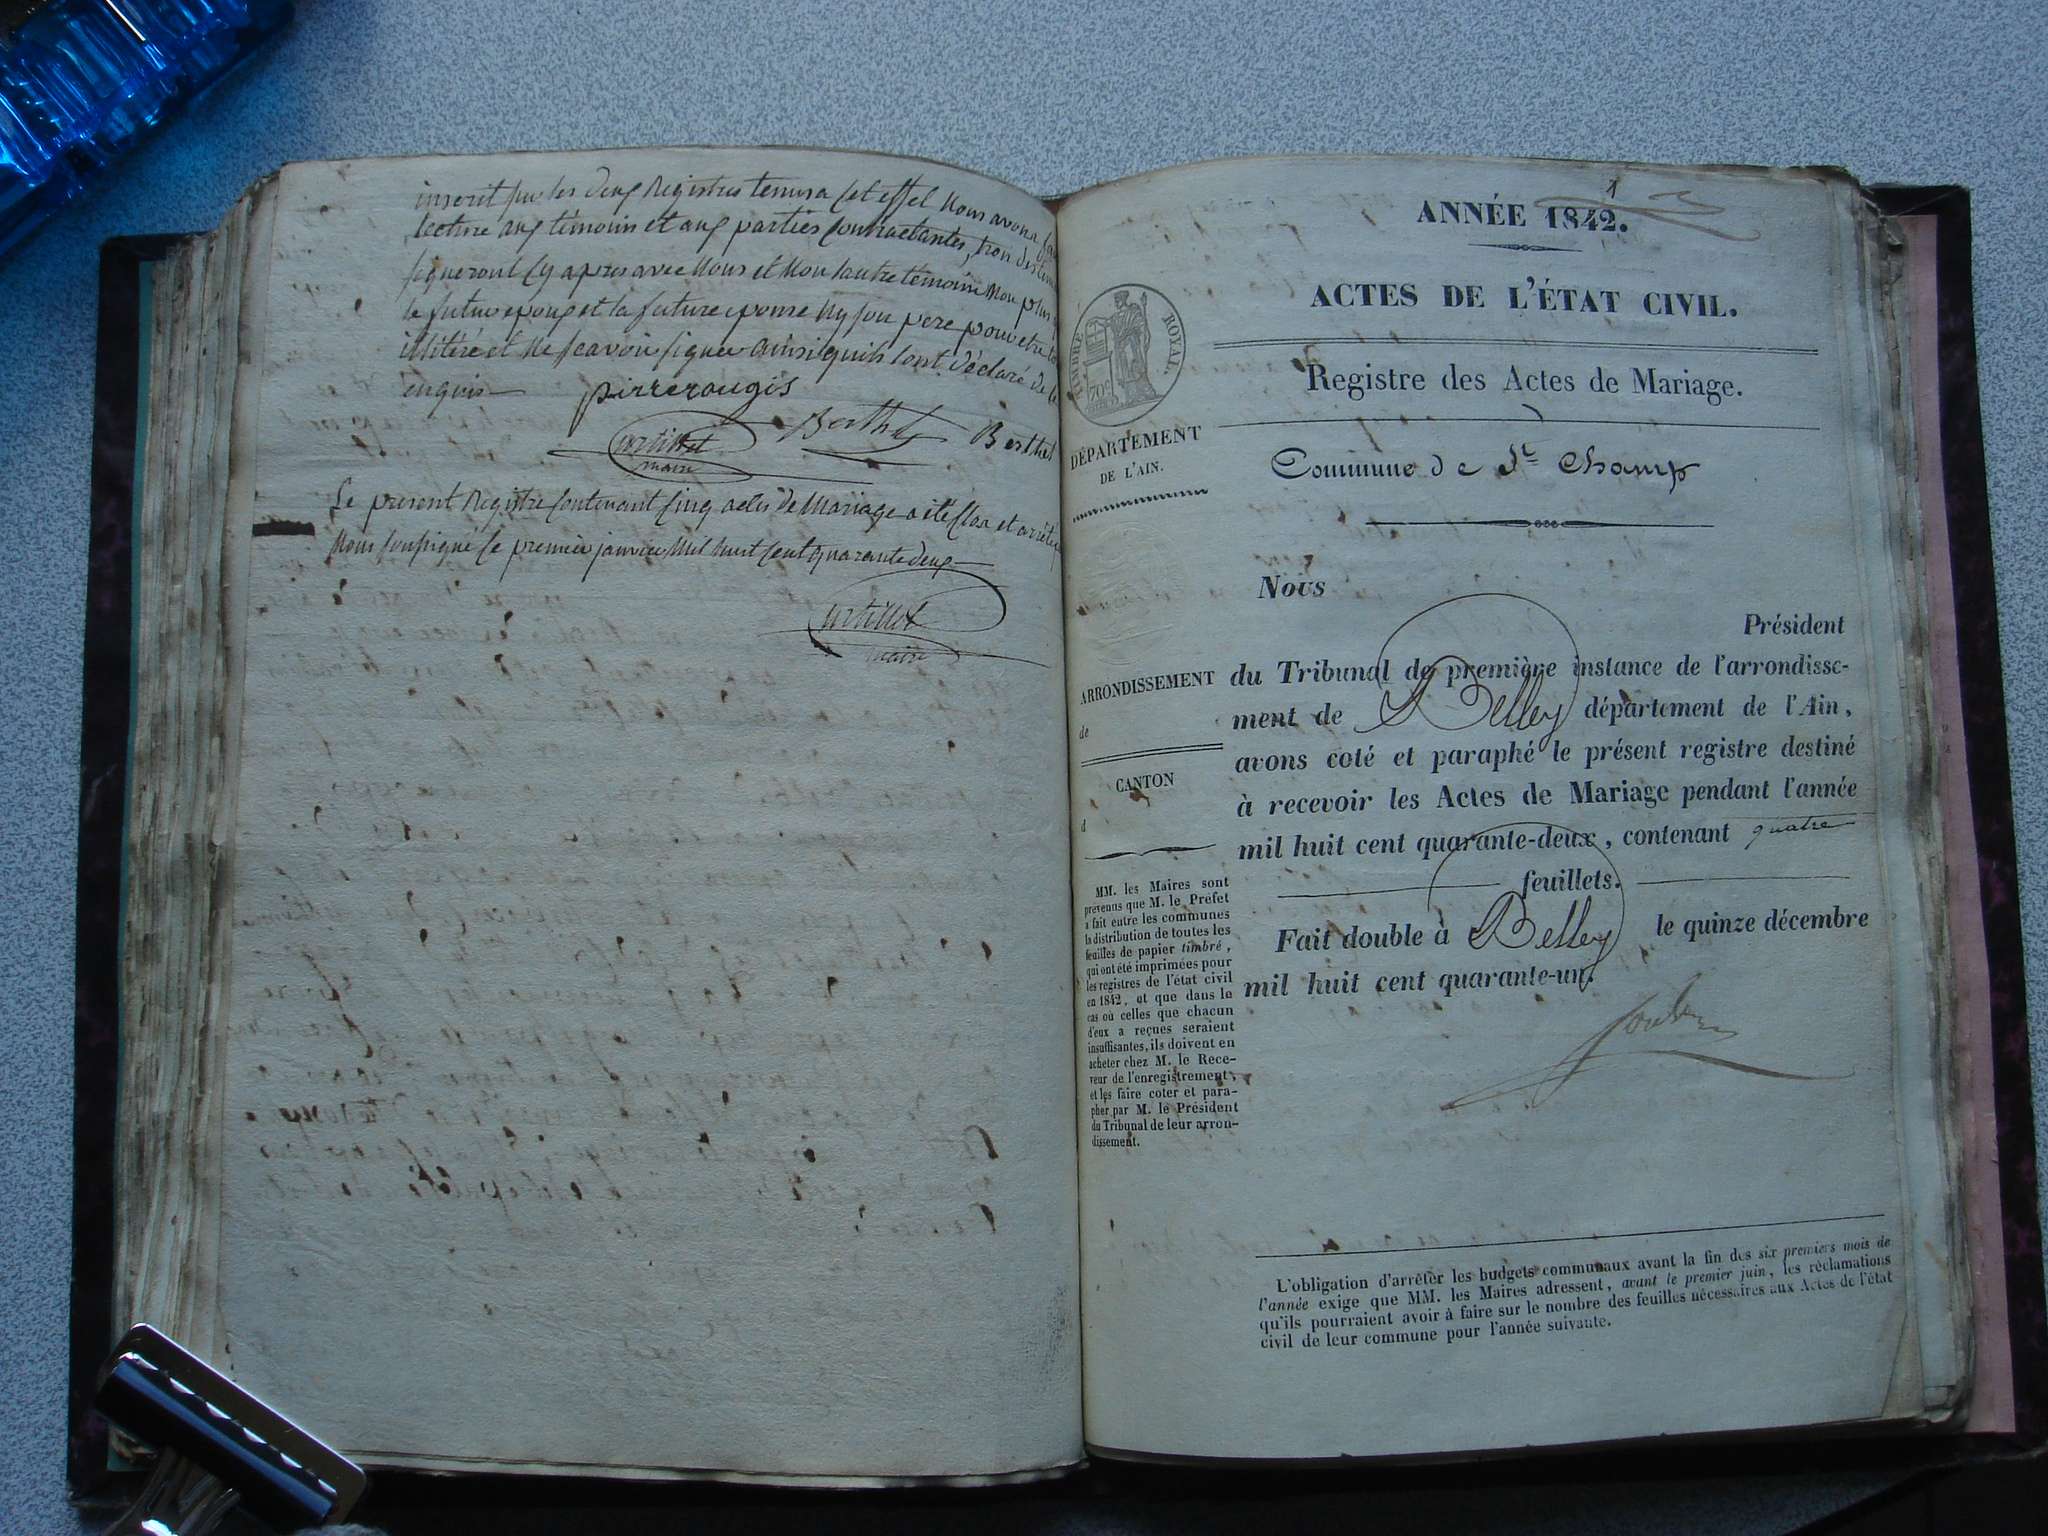 inscrit sur les deux Registres tenus a cet effet Nous avons
lecture aux témoins et aux parties contractantes, trois des
signeront cy apres avec Nous et Non l'autre témoins Non plus
le futur epoux et la future epouse Ny son pere pour etre
illitéré et ne scavoir signer ainsi quils l'ont déclaré de
enquis
pierrerougis
Berthet
Berthet
maire
Le present Registre Contenant Cinq actes de Mariage a été Clos et arrété
Nous soussigné le premier janvier Mil huit cent quarante deux
maire
1
ANNÉE 1842.
ACTES DE L'ÉTAT CIVIL.
TIMBRE ROYAL
70c
Registre des Actes de Mariage.
DÉPARTEMENT
DE L'AIN.
Commune de St Champ
Nous
Président
ARRONDISSEMENT
de
CANTON
d
du Tribunal de première instance de l'arrondisse-
ment de Belley département de l'Ain,
avons coté et paraphé le présent registre destiné
à recevoir les Actes de Mariage pendant l'année
mil huit cent quarante-deux, contenant quatre
feuillets.
Fait double à Belley le quinze décembre
mil huit cent quarante-un.
MM. les Maires sont
prévenus que M. le Préfet
a fait entre les communes
la distribution de toutes les
feuilles de papier timbré,
qui ont été imprimées pour
les registres de l'état civil
en 1842, et que dans le
cas où celles que chacun
d'eux a reçues seraient
insuffisantes, ils doivent en
acheter chez M. le Rece-
veur de l'enregistrement,
et les faire coter et para-
pher par M. le Président
du Tribunal de leur arron-
dissement.
L'obligation d'arrêter les budgets communaux avant la fin des six premiers mois de
l'année exige que MM. les Maires adressent, avant le premier juin, les réclamations
qu'ils pourraient avoir à faire sur le nombre des feuilles nécessaires aux Actes de l'état
civil de leur commune pour l'année suivante.